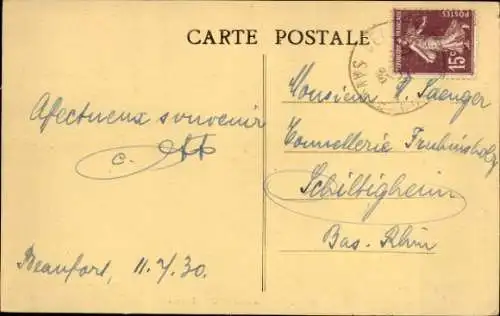 CARTE POSTALE
POSTES
REPUBLIQUE FRANÇAISE
15c
Afectueux souvenir
c. Ott
Beaufort, 11.7.30.
Monsieur C. Saenger
Tonnellerie Fruhinsholz
Schiltigheim
Bas. Rhin